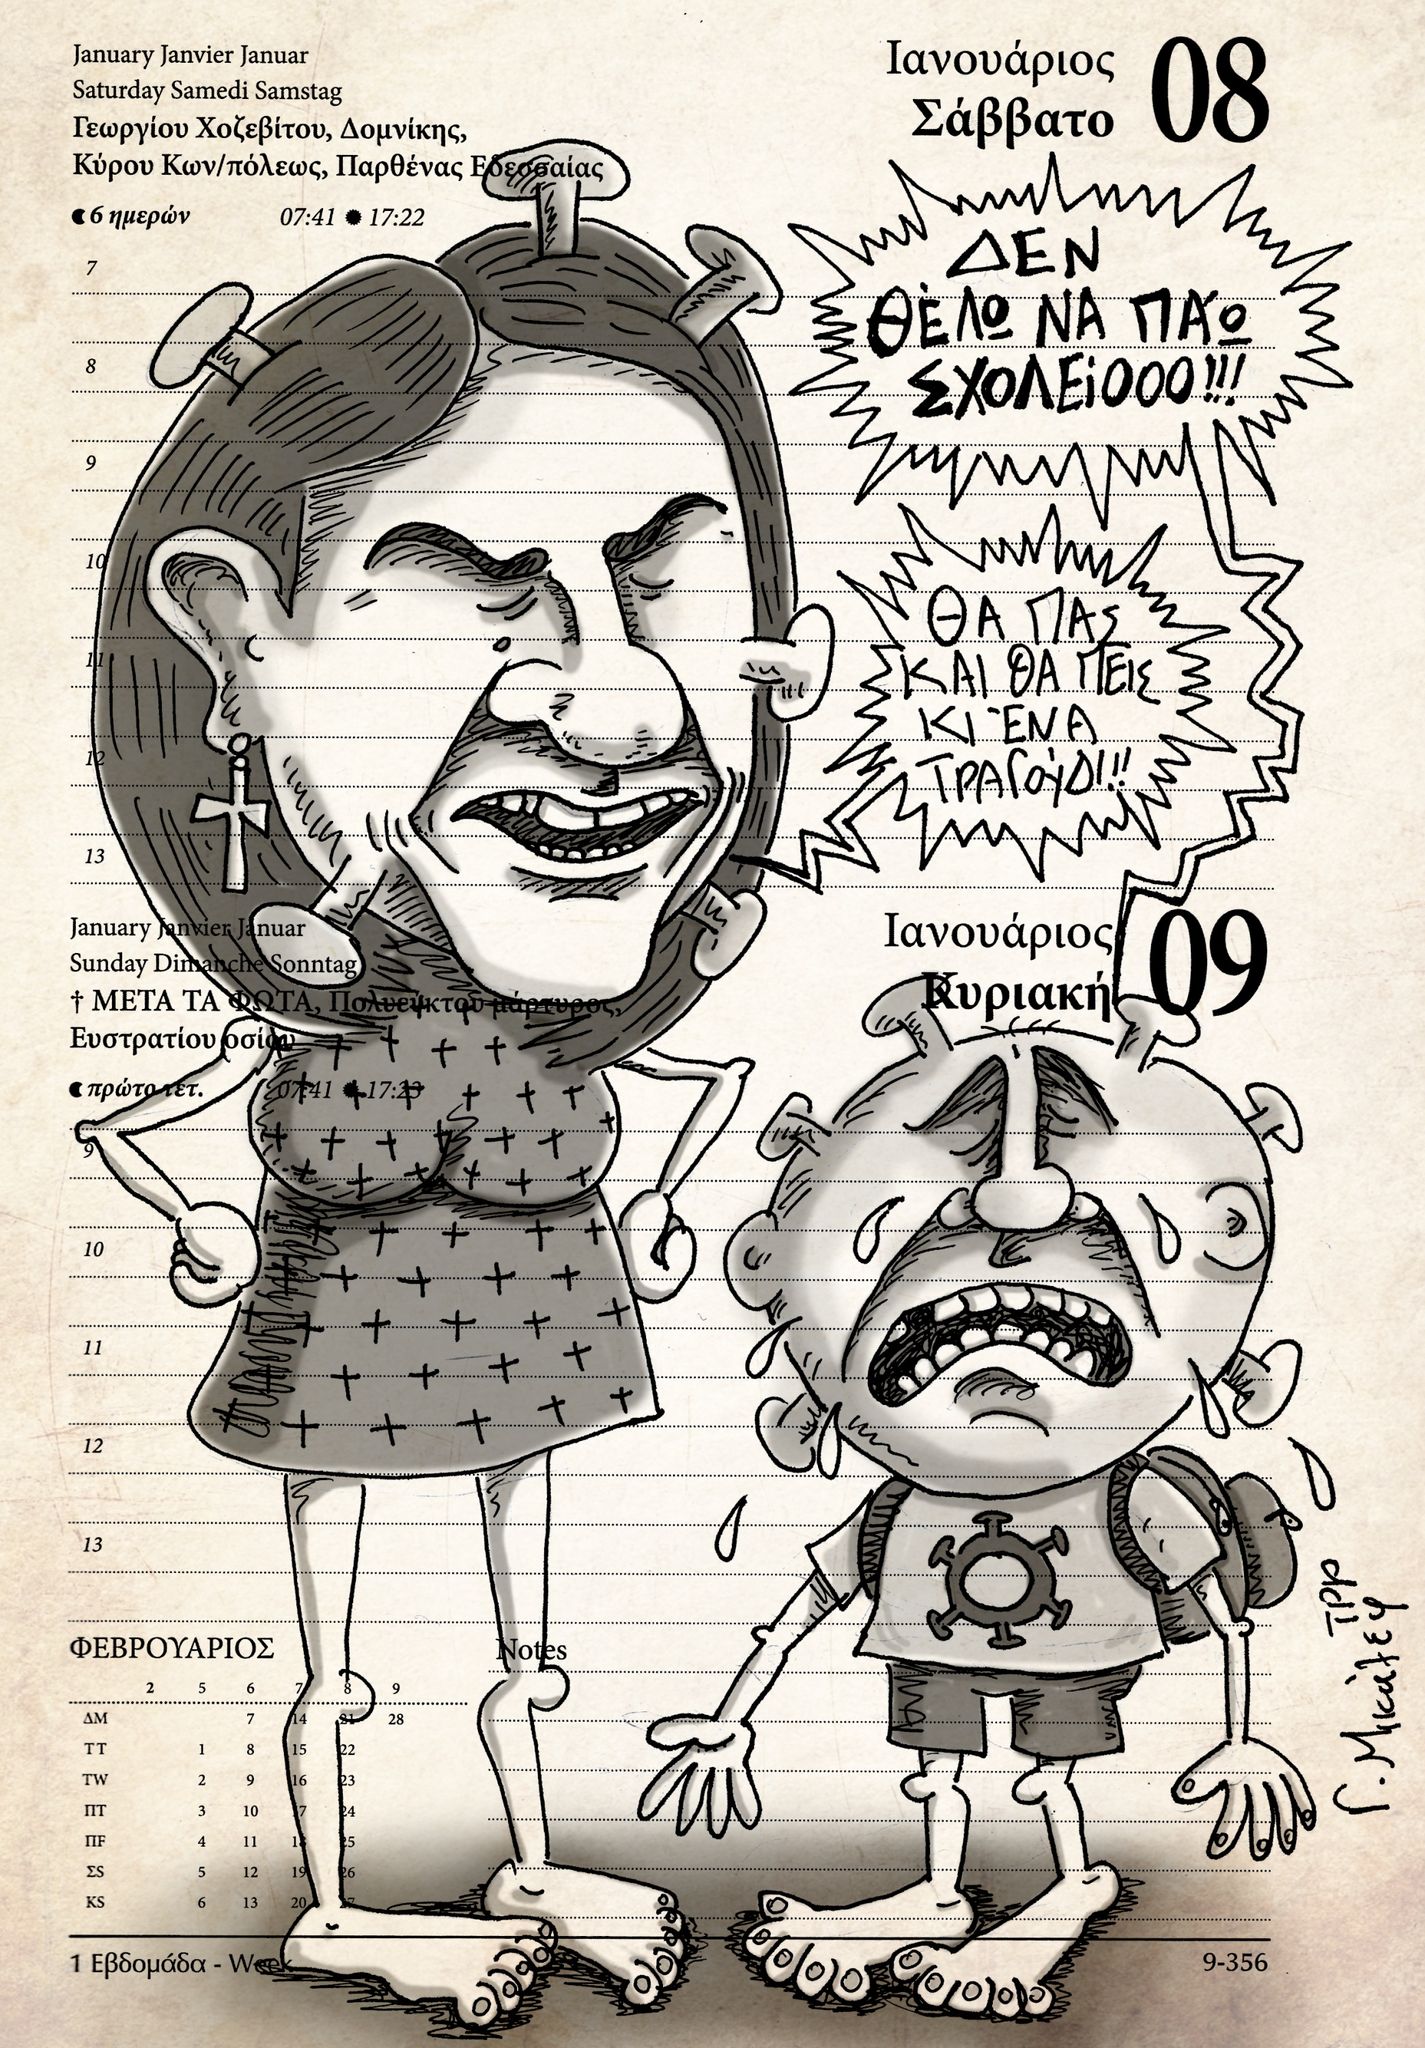 January Janvier Januar
Saturday Samedi Samstag
Γεωργίου Χοζεβίτου, Δομνίκης,
Κύρου Κων/πόλεως, Παρθένας Εδεσσαίας
6 ημερών 07:41 17:22
Ιανουάριος
Σάββατο
08
7
8
9
10
11
12
13
ΔΕΝ
ΘΈΛΩ ΝΑ ΠΆΩ
ΣΧΟΛΕίΟΟΟ!!!
ΘΑ ΠΑΣ
ΚΑΙ ΘΑ ΠΕΙΣ
ΚΙ ΈΝΑ
ΤΡΑΓΟΎΔ!!!
January Janvier Januar
Sunday Dimanche Sonntag
† ΜΕΤΑ ΤΑ ΦΩΤΑ, Πολυεύκτου μάρτυρος,
Ευστρατίου οσίου
πρώτο τέτ. 07:41 17:23
Ιανουάριος
Κυριακή
09
9
10
11
12
13
ΦΕΒΡΟΥΑΡΙΟΣ
2 5 6 7 8 9
ΔΜ 7 14 21 28
ΤΤ 1 8 15 22
ΤW 2 9 16 23
ΠΤ 3 10 17 24
ΠF 4 11 18 25
ΣS 5 12 19 26
ΚS 6 13 20 27
Notes
1 Εβδομάδα - Week
9-356
Γ. Μικάλεφ